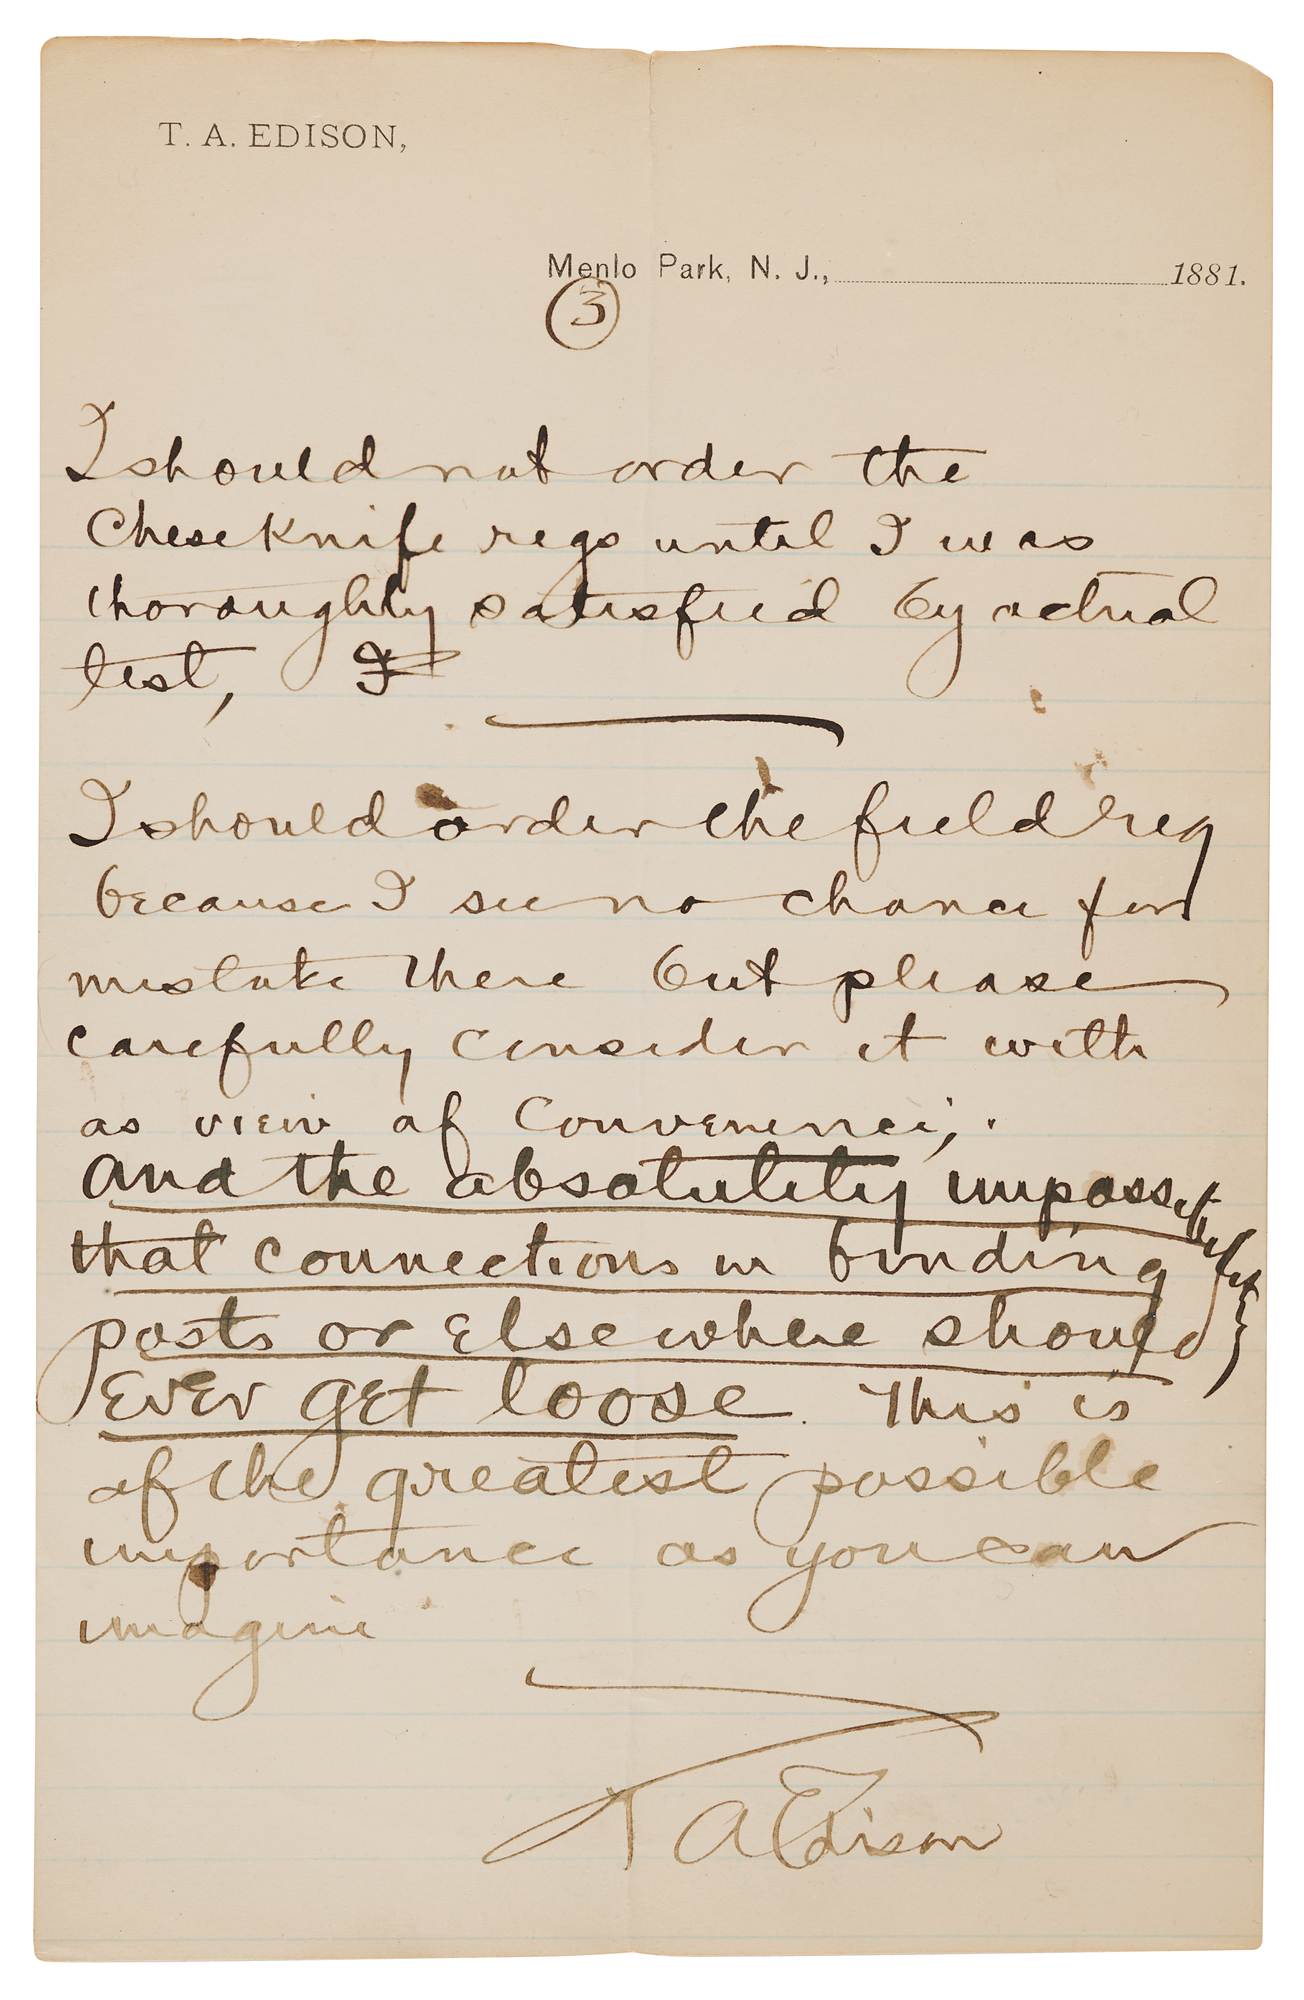 T. A. EDISON,
Menlo Park, N. J., 1881.
3
I should not order the
Cheseknife regs until I was
thoroughly satisfied by actual
test, I
I should order the field reg
because I see no chance for
mistake there but please
carefully consider it with
as view of Convenience,.
and the absolutility impossibility
that connections in binding
posts or Elsewhere should
EvEr gEt loose. This is
of the greatest possible
importance as you can
imagine
T A Edison